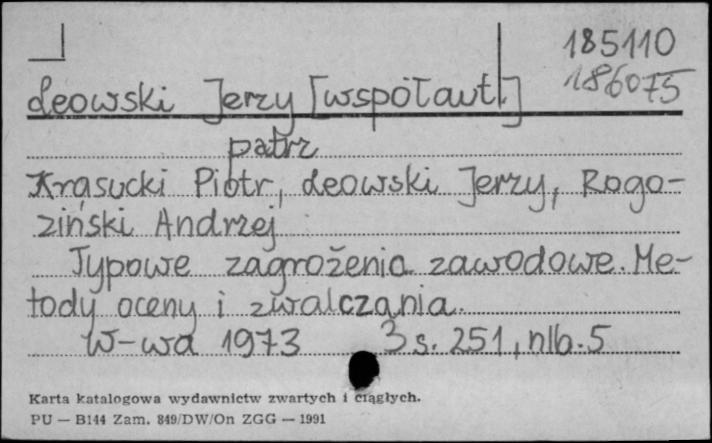 185110
186075
Leowski Jerzy [współaut.]
patrz
Krasucki Piotr, Leowski Jerzy, Rogo-
ziński Andrzej
Typowe zagrożenia zawodowe. Me-
tody oceny i zwalczania.
W-wa 1973 3 s. 251, nlb. 5
Karta katalogowa wydawnictw zwartych i ciągłych.
PU — B144 Zam. 849/DW/On ZGG — 1991